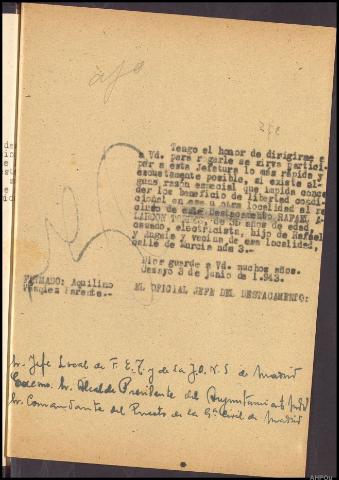 Tengo el honor de dirigirme a
a Vd. para rogarle se sirva partici-
par a esta Jefatura lo mas rápida y
exactamente posible, si existe al-
guna razón especial que impida conce
der los beneficio de libertad condi-
cional en esa u otra localidad al re
cluso de este Destacamento RAFAEL A-
LARCON de 32 años de edad
casado, electricista, hijo de Rafael
y Angela y vecino de esa localidad,
calle de Murcia núm 3.-
Dios guarde a Vd. muchos años.
3 de junio de 1.943.
FIRMADO: Aquilino
EL OFICIAL JEFE DEL DESTACAMENTO:
Sr. Jefe Local de F.E.T. y de las J.O.N.S de Madrid
Excmo. Sr. Alcalde Presidente del Ayuntamiento
Sr. Comandante del Puesto de la Gª Civil de Madrid
AHPOu